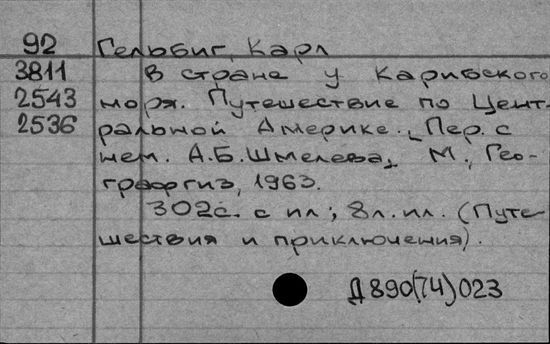 92 Гельбиг, Карл
3811 В стране у Карибского
2543 моря. Путешествие по Цент-
2536 ральной Америке. [Пер. с
нем. А.Б.Шмелева]. М., Гео-
графгиз, 1963.
302с. с ил; 8л. ил. (Путе-
шествия и приключения).
Д890(74)023